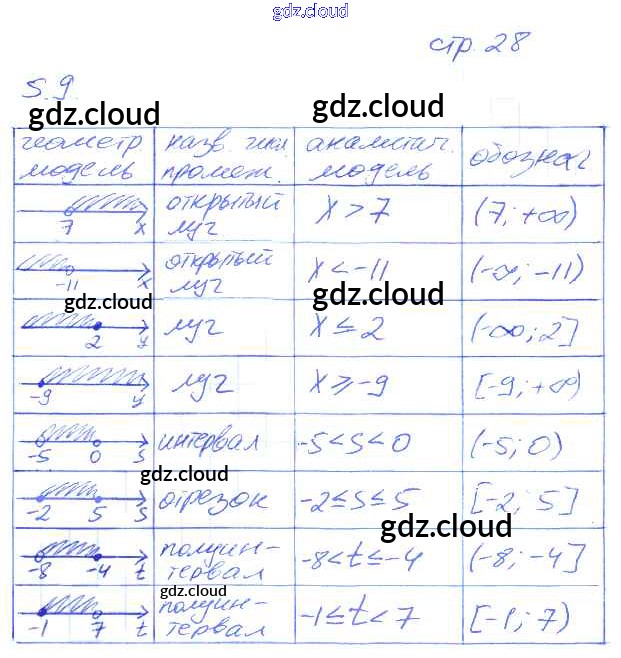 gdz.cloud
стр. 28
5.9.
gdz.cloud gdz.cloud
геометр. модель назв. чис. промеж. аналитич. модель обознач
7 x открытый луч x > 7 (7; +∞)
-11 x открытый луч x < -11 (-∞; -11)
gdz.cloud gdz.cloud
2 y луч x ≤ 2 (-∞; 2]
-9 y луч x ≥ -9 [-9; +∞)
-5 0 s интервал -5 < s < 0 (-5; 0)
gdz.cloud
-2 5 s отрезок -2 ≤ s ≤ 5 [-2; 5]
gdz.cloud
-8 -4 t полуин-тервал -8 < t ≤ -4 (-8; -4]
gdz.cloud
-1 7 t полуин-тервал -1 ≤ t < 7 [-1; 7)
gdz.cloud